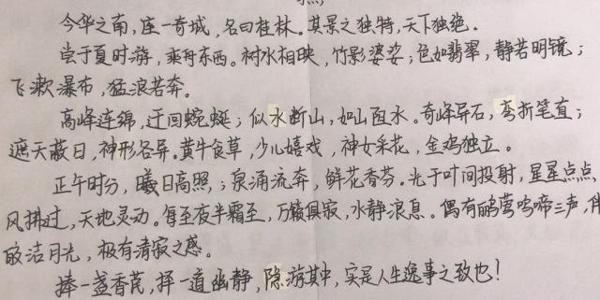 今华之南，座一奇城，名曰桂林。其景之独特，天下独绝。
尝于夏时游，乘舟东西。树水相映，竹影婆娑；色如翡翠，静若明镜；
飞漱瀑布，猛浪若奔。
高峰连绵，迂回蜿蜒；似水断山，如山阻水。奇峰异石，弯折笔直；
遮天蔽日，神形各异。黄牛食草，少儿嬉戏，神女采花，金鸡独立。
正午时分，曦日高照，；泉涌流奔，鲜花香芬。光于叶间投射，星星点点，
风拂过，天地灵动。每至夜半霜至，万籁俱寂，水静浪息。偶有鹂莺鸣啼三声，伴
皎洁月光，极有清寂之感。
捧一盏香茗，择一道幽静，隐游其中，实是人生逸事之致也！